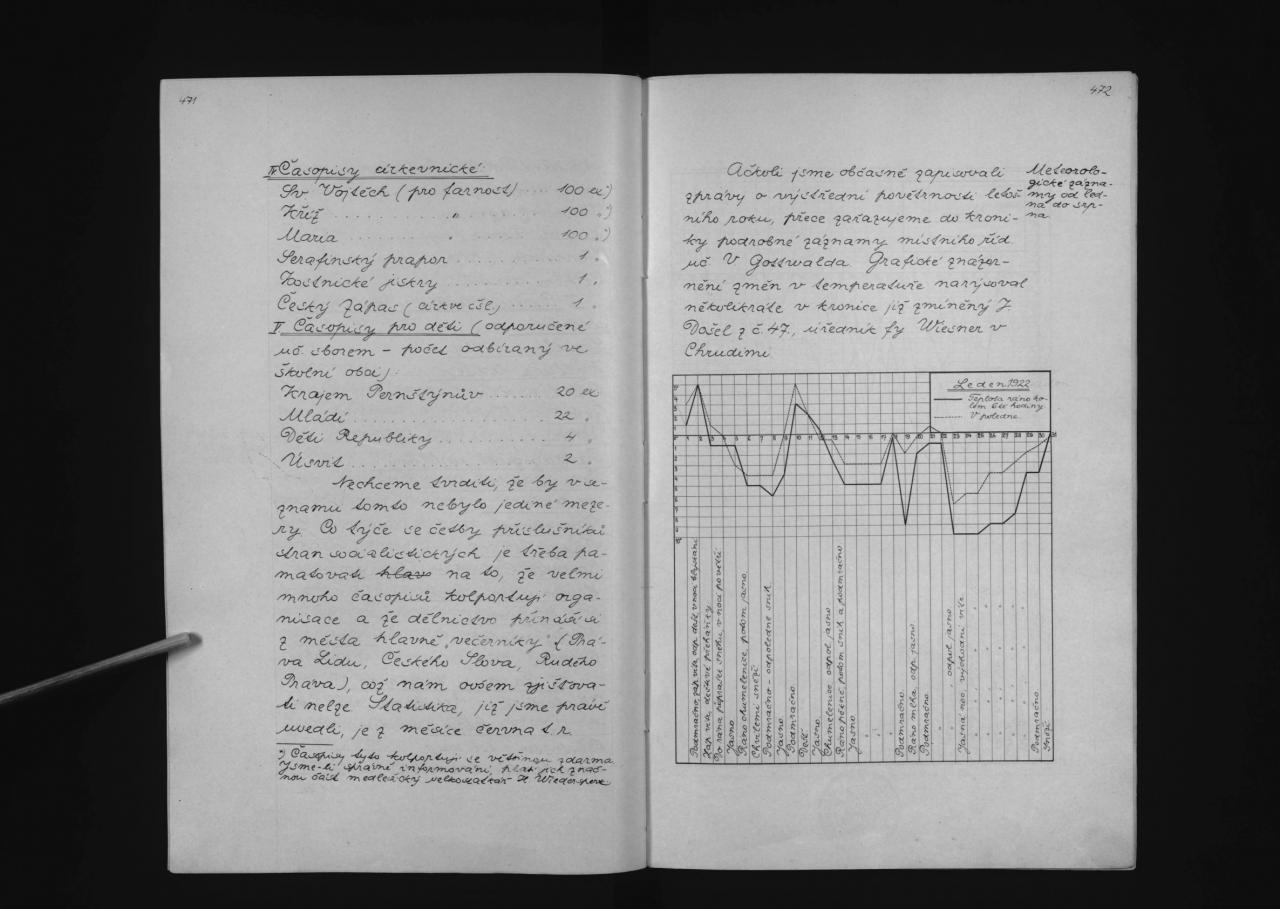 471
IV Časopisy církevnické:
Sv. Vojtěch (pro farnost) ..... 100 ex*)
Kříž ........... " ........ 100 " *)
Maria .......... " ........ 100 " *)
Serafínský prapor .......... 1 "
Kostnické jiskry .......... 1 "
Český Zápas (církve čsl.) ...... 1 "
V Časopisy pro děti (odporučené
uč. sborem – počet odbíraný ve
školní obci):
Krajem Pernštýnův ....... 20 ex
Mládí ............ 22 "
Děti Republiky .......... 4 "
Úsvit ............ 2 "
Nechceme tvrditi, že by v se-
znamu tomto nebylo jediné meze-
ry. Co týče se četby příslušníků
stran socialistických je třeba pa-
matovati hlavo na to, že velmi
mnoho časopisů kolportují orga-
nisace a že dělnictvo přináší si
z města hlavně „večerníky" (Prá-
va Lidu, Českého Slova, Rudého
Práva), což nám ovšem zjišťova-
ti nelze. Statistika, již jsme právě
uvedli, je z měsíce června t. r.
*) Časopisy tyto kolportují se většinou zdarma.
Jsme-li správně informováni, platí jich znač-
nou část medlešický velkostatkář H. Wiedersperk
472
Meteorolo-
gické zázna-
my od led-
na do srp-
na.
Ačkoli jsme občasně zapisovali
zprávy o výstřední povětrnosti letoš-
ního roku, přece zařazujeme do kroni-
ky podrobné záznamy místního říd.
uč. V. Gottwalda. Grafické znázor-
nění změn v temperatuře narýsoval
několikráte v kronice již zmíněný J.
Dašel z č. 47., úředník fy Wiesner v
Chrudimi.
Leden 1922
Teplota ráno ko-
lem 6té hodiny
V poledne
1 2 3 4 5 6 7 8 9 10 11 12 13 14 15 16 17 18 19 20 21 22 23 24 25 26 27 28 29 30 31
Dešťové přeháňky
Jasno
Ráno chumelenice, potom jasno.
Chvílemi sněží
Podmračno – odpoledne sníh.
Jasno.
Podmračno
Déšť
Jasno.
Chumelenice odpol. jasno
Ráno pěkně, potom sníh a podmračno
Jasno
Podmračno.
Ráno mlha, odp. jasno.
Podmračno
" , odpol. jasno.
Jasná noc, východní vítr.
Podmračno
Sněží